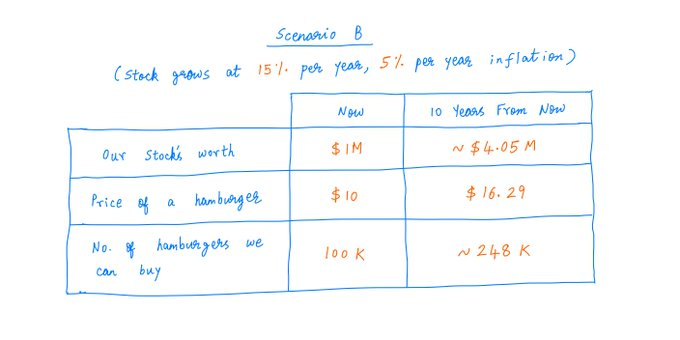 Scenario B
(Stock grows at 15% per year, 5% per year inflation)
Now
10 Years From Now
Our Stock's worth
$1M
~ $4.05 M
Price of a hamburger
$10
$16.29
No. of hamburgers we
can buy
100 K
~ 248 K